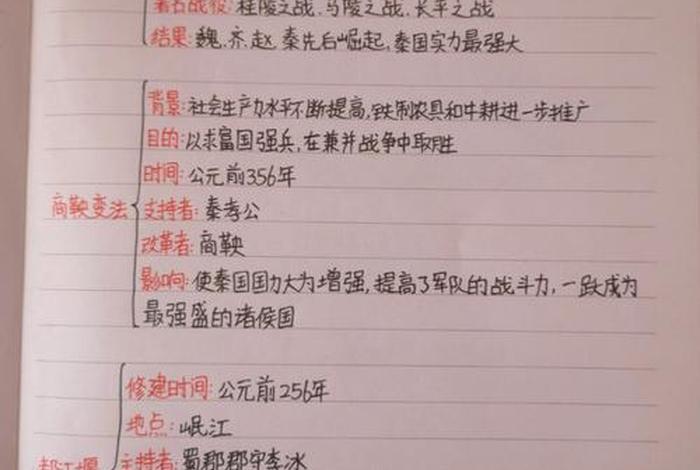 著名战役：桂陵之战、马陵之战、长平之战
结果：魏、齐、赵、秦先后崛起，秦国实力最强大
背景：社会生产力水平不断提高，铁制农具和牛耕进一步推广
目的：以求富国强兵，在兼并战争中取胜
时间：公元前356年
商鞅变法
支持者：秦孝公
改革者：商鞅
影响：使秦国国力大为增强，提高了军队的战斗力，一跃成为
最强盛的诸侯国
修建时间：公元前256年
地点：岷江
都江堰
主持者：蜀郡郡守李冰